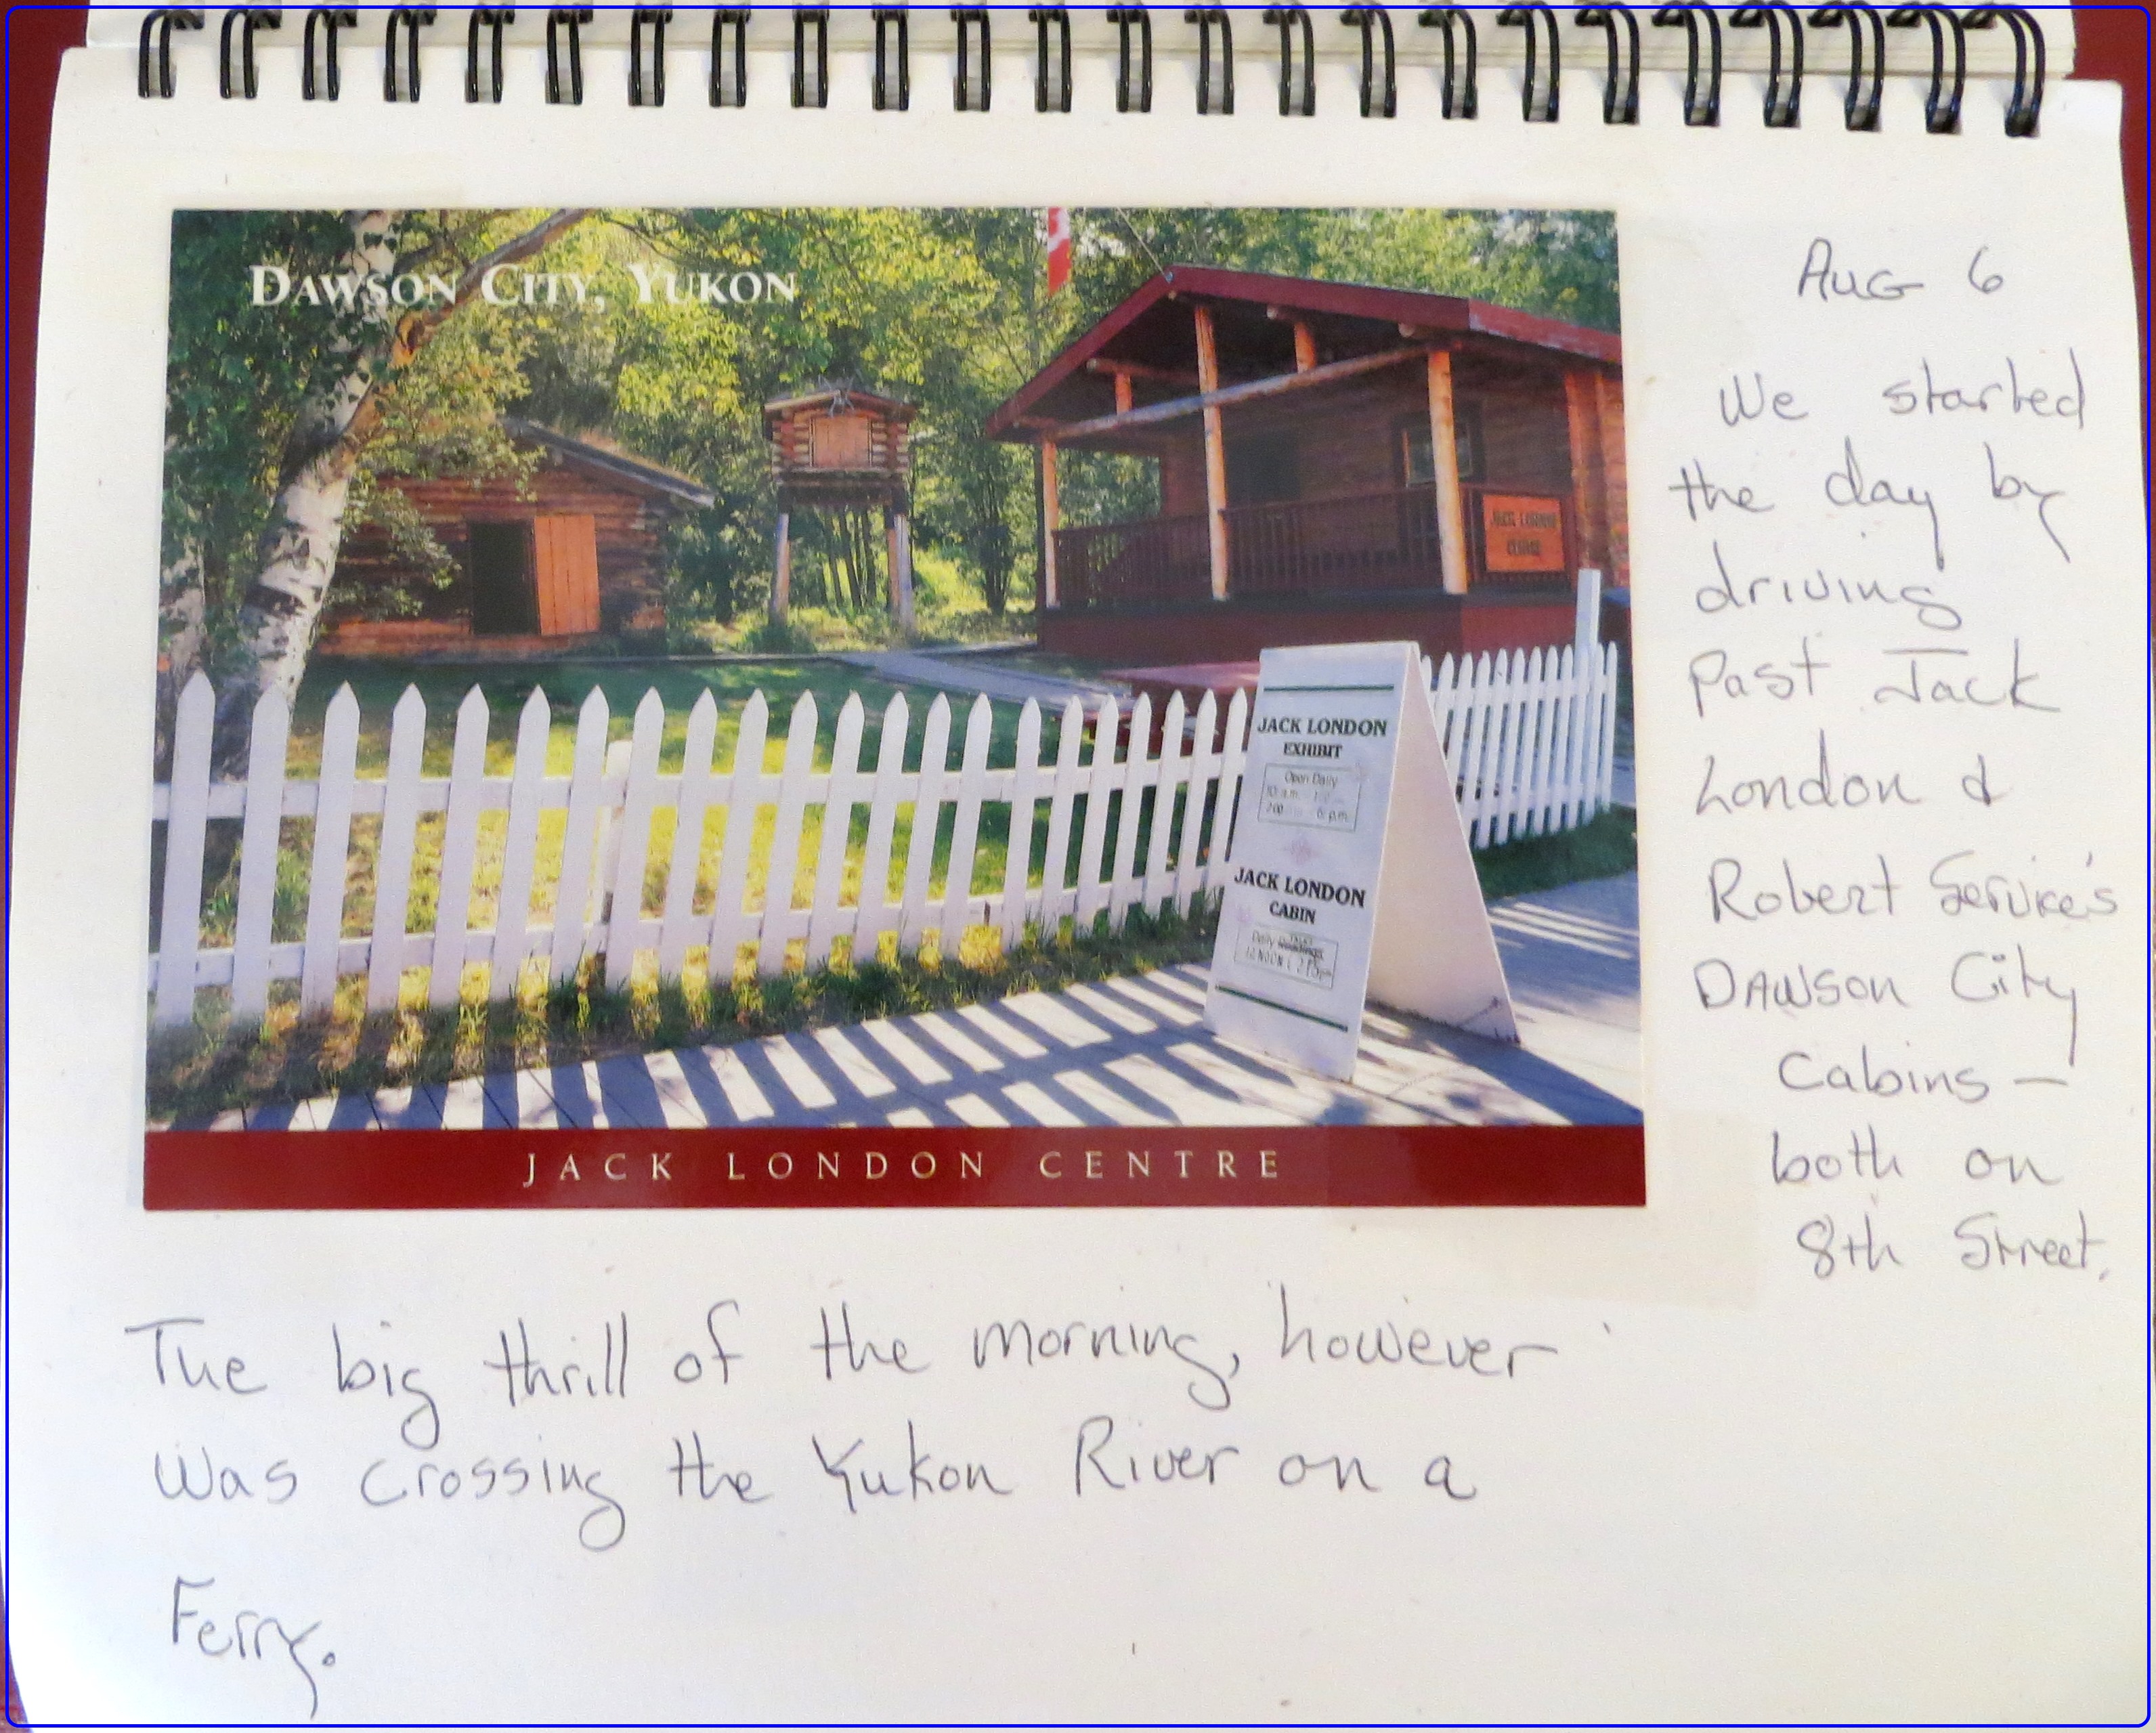 DAWSON CITY, YUKON
JACK LONDON
JACK LONDON
EXHIBIT
Open Daily
10 a.m.
2:00 6: p.m.
JACK LONDON
CABIN
Daily
12 NOON &
JACK LONDON CENTRE
AUG 6
We started
the day by
driving
Past Jack
London &
Robert Service's
DAWSON City
Cabins —
both on
8th Street.
The big thrill of the morning, however
was crossing the Yukon River on a
Ferry.